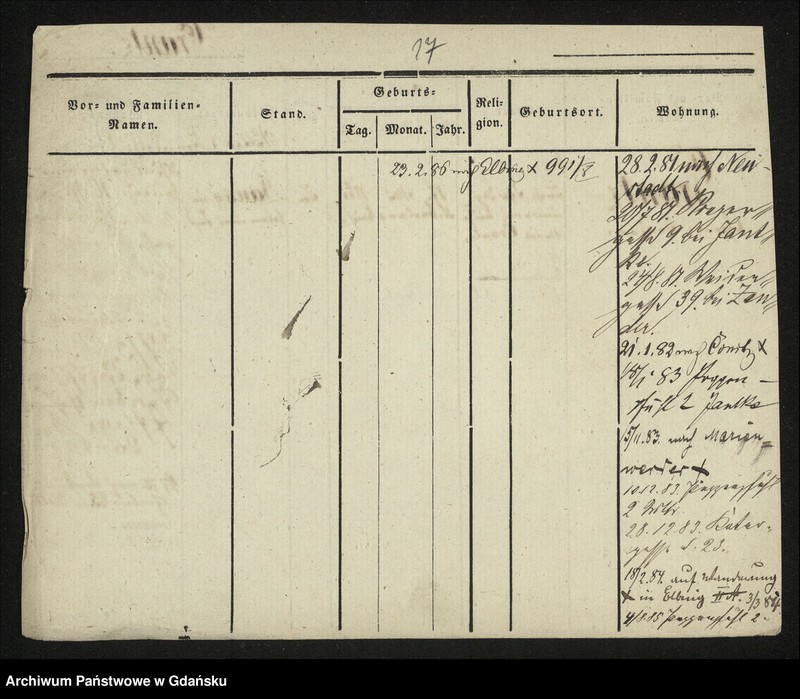 17
Geburts-
Vor- und Familien-
Namen.
Stand.
Tag.
Monat.
Jahr.
Reli-
gion.
Geburtsort.
Wohnung.
23.2.86 nach Elbing x 991/
28.2.81 nach Neu-
stadt.
20/7 81.
gasse 9. bei Jant-
ke.
24/8. 81. Weiden-
gasse 39. bei Zan-
der.
21.1.82 nach Conitz x
18/1 83 Poggen-
pfuhl 2 Jantke
15/11.83. nach Marien-
werder x
10.12.83. Poggenpfuhl
2
28.12.83. Kater-
gasse 23.
18/2.84. auf Wanderung
x in Elbing 3/3 84
4/8.85 Poggenpfuhl 2.
Archiwum Państwowe w Gdańsku